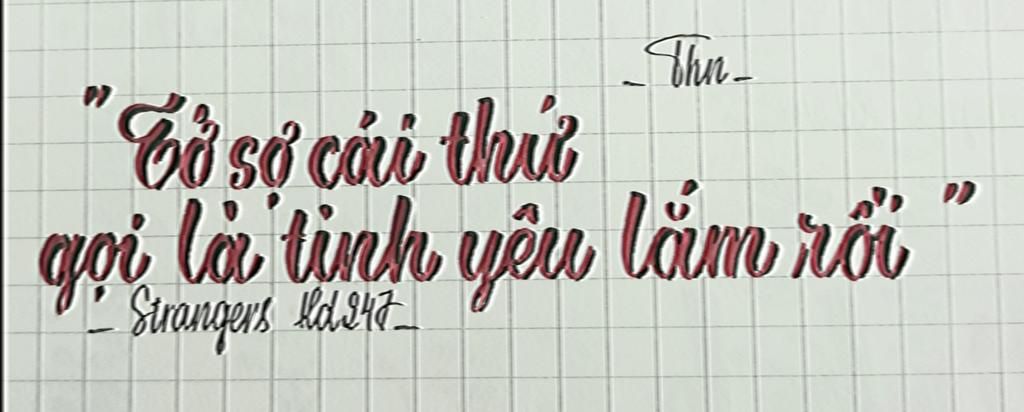 - Thn -
" Tở sợ cái thứ
gọi là tình yêu lắm rồi "
- Strangers Hd247 -